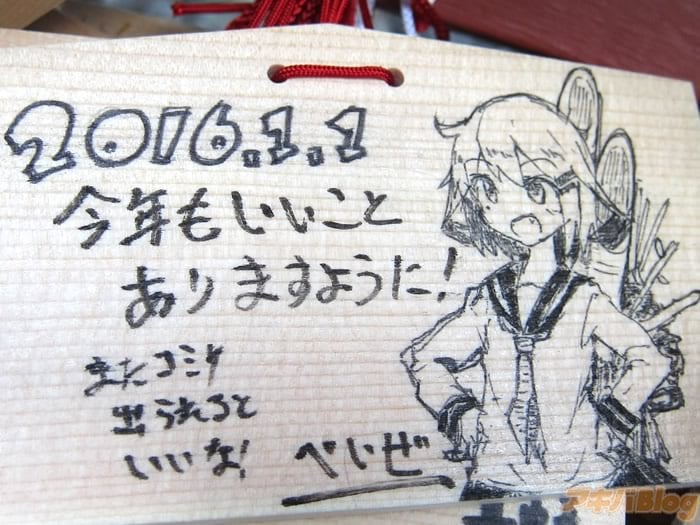 2016.1.1
今年もいいこと
ありますように!
またコミケ
出られると
いいな!
べいぜ
アキバBlog